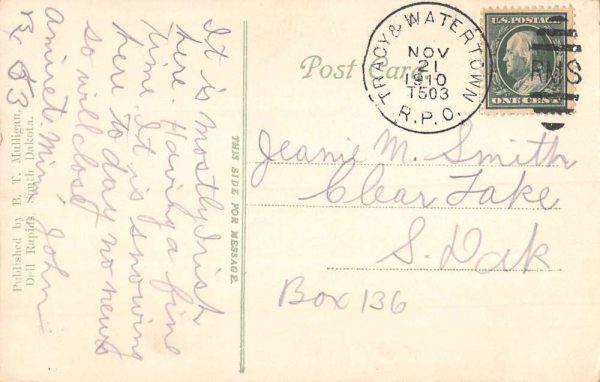 It is mostly Irish
here. Having a fine
time. It is snowing
here to day no news
so will close
John
Amiret Min,
R 53
Published by B. T. Mulligan,
Dell Rapids, South Dakota.
THIS SIDE FOR MESSAGE.
Post Card
TRACY & WATERTOWN
NOV
21
1910
T503
R.P.O.
U.S. POSTAGE
ONE CENT
RMS
Jeanie M. Smith
Clear Lake
S. Dak
Box 136